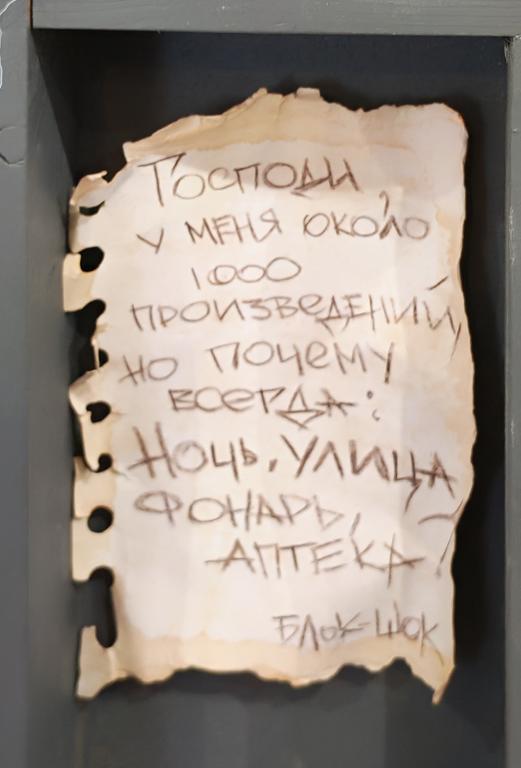 Господи,
у меня около
1000
произведений,
но почему
всегда:
Ночь, улица
фонарь,
аптека!
Блок-шок